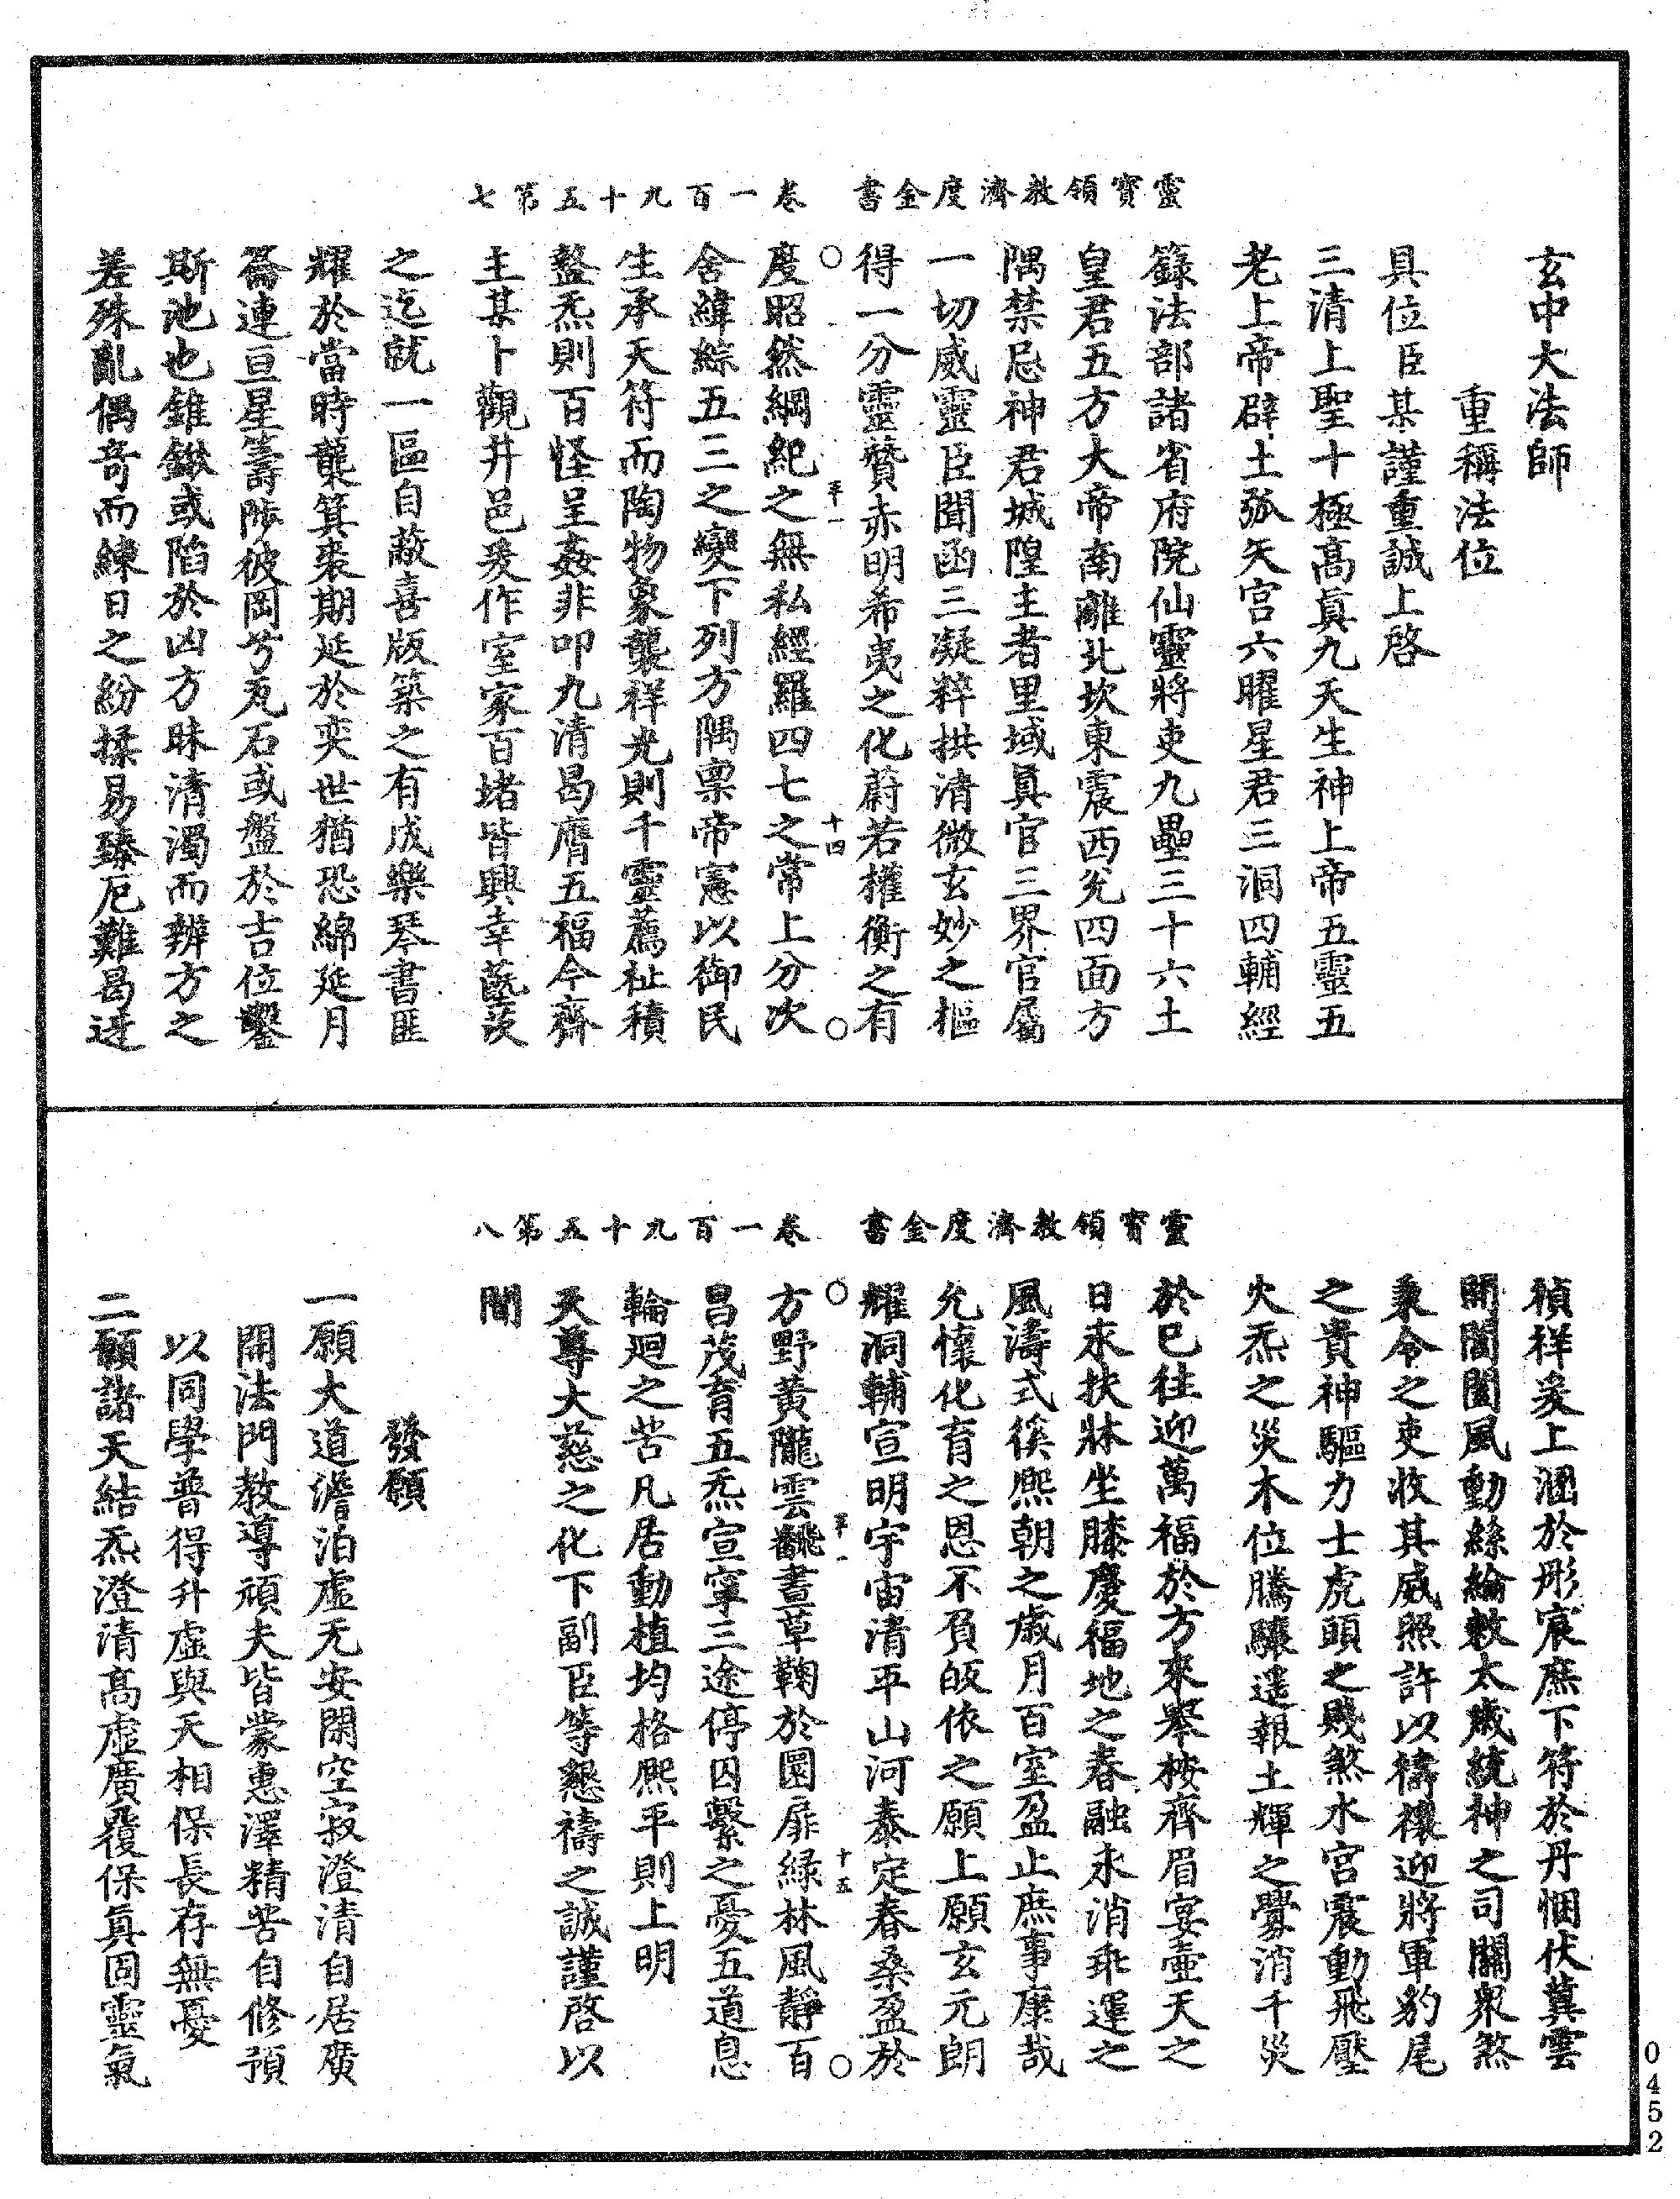 靈寶領教濟度金書　卷一百九十五第七
玄中大法師
重稱法位
具位臣某謹重誠上啓
三清上聖十極高眞九天生神上帝五靈五
老上帝辟土弧矢宮六曜星君三洞四輔經
籙法部諸省府院仙靈將吏九壘三十六土
皇君五方大帝南離北坎東震西兊四面方
隅禁忌神君城隍主者里域眞官三界官屬
一切威靈臣聞函三凝粹拱清微玄妙之樞
得一分靈贊赤明希夷之化蔚若權衡之有
度昭然綱紀之無私經羅四七之常上分次
舍緯綜五三之變下列方隅禀帝憲以御民
生承天符而陶物象襲祥光則千靈薦祉積
盭炁則百怪呈姦非叩九清曷膺五福今齊
主某卜觀井邑爰作室家百堵皆興幸蓺茨
之迄就一區自蔽喜版築之有成樂琴書匪
耀於當時襲箕裘期延於奕世猶恐綿延月
崙連亘星籌陟彼岡兮瓦石或盤於吉位鑿
斯池也錐鍬或陷於凶方昧清濁而辨方之
差殊亂偶奇而練日之紛揉易臻厄難曷迓
靈寶領教濟度金書　卷一百九十五第八
禎祥爰上涸於彤宸庶下符於丹悃伏冀雲
開閶闔風動絲綸敕太歲統神之司關衆煞
秉令之吏收其威照許以禱禳迎將軍豹尾
之貴神驅力士虎頭之賤煞水宮震動飛壓
火炁之災木位騰驤遥報土輝之釁消千災
於已往迎萬福於方來舉桉齊眉宴壺天之
日永扶牀坐膝慶福地之春融永消乖運之
風濤式徯熈朝之歲月百室盈止庶事康哉
允懷化育之恩不負皈依之願上願玄元朗
耀洞輔宣明宇宙清平山河泰定春桑盈於
方野黃隴雲飜晝草鞠於圜扉緑林風靜百
昌茂育五炁宣寧三途停囚繫之憂五道息
輪廻之苦凡居動植均格熈平則上明
天尊大慈之化下副臣等懇禱之誠謹啓以
聞
發願
一願大道澹泊虛无安閑空寂澄清自居廣
開法門教導頑夫皆蒙惠澤精苦自修預
以同學普得升虛與天相保長存無憂
二願諸天結炁澄清高虛廣覆保眞固靈氣
平一
十四
平一
十五
0452